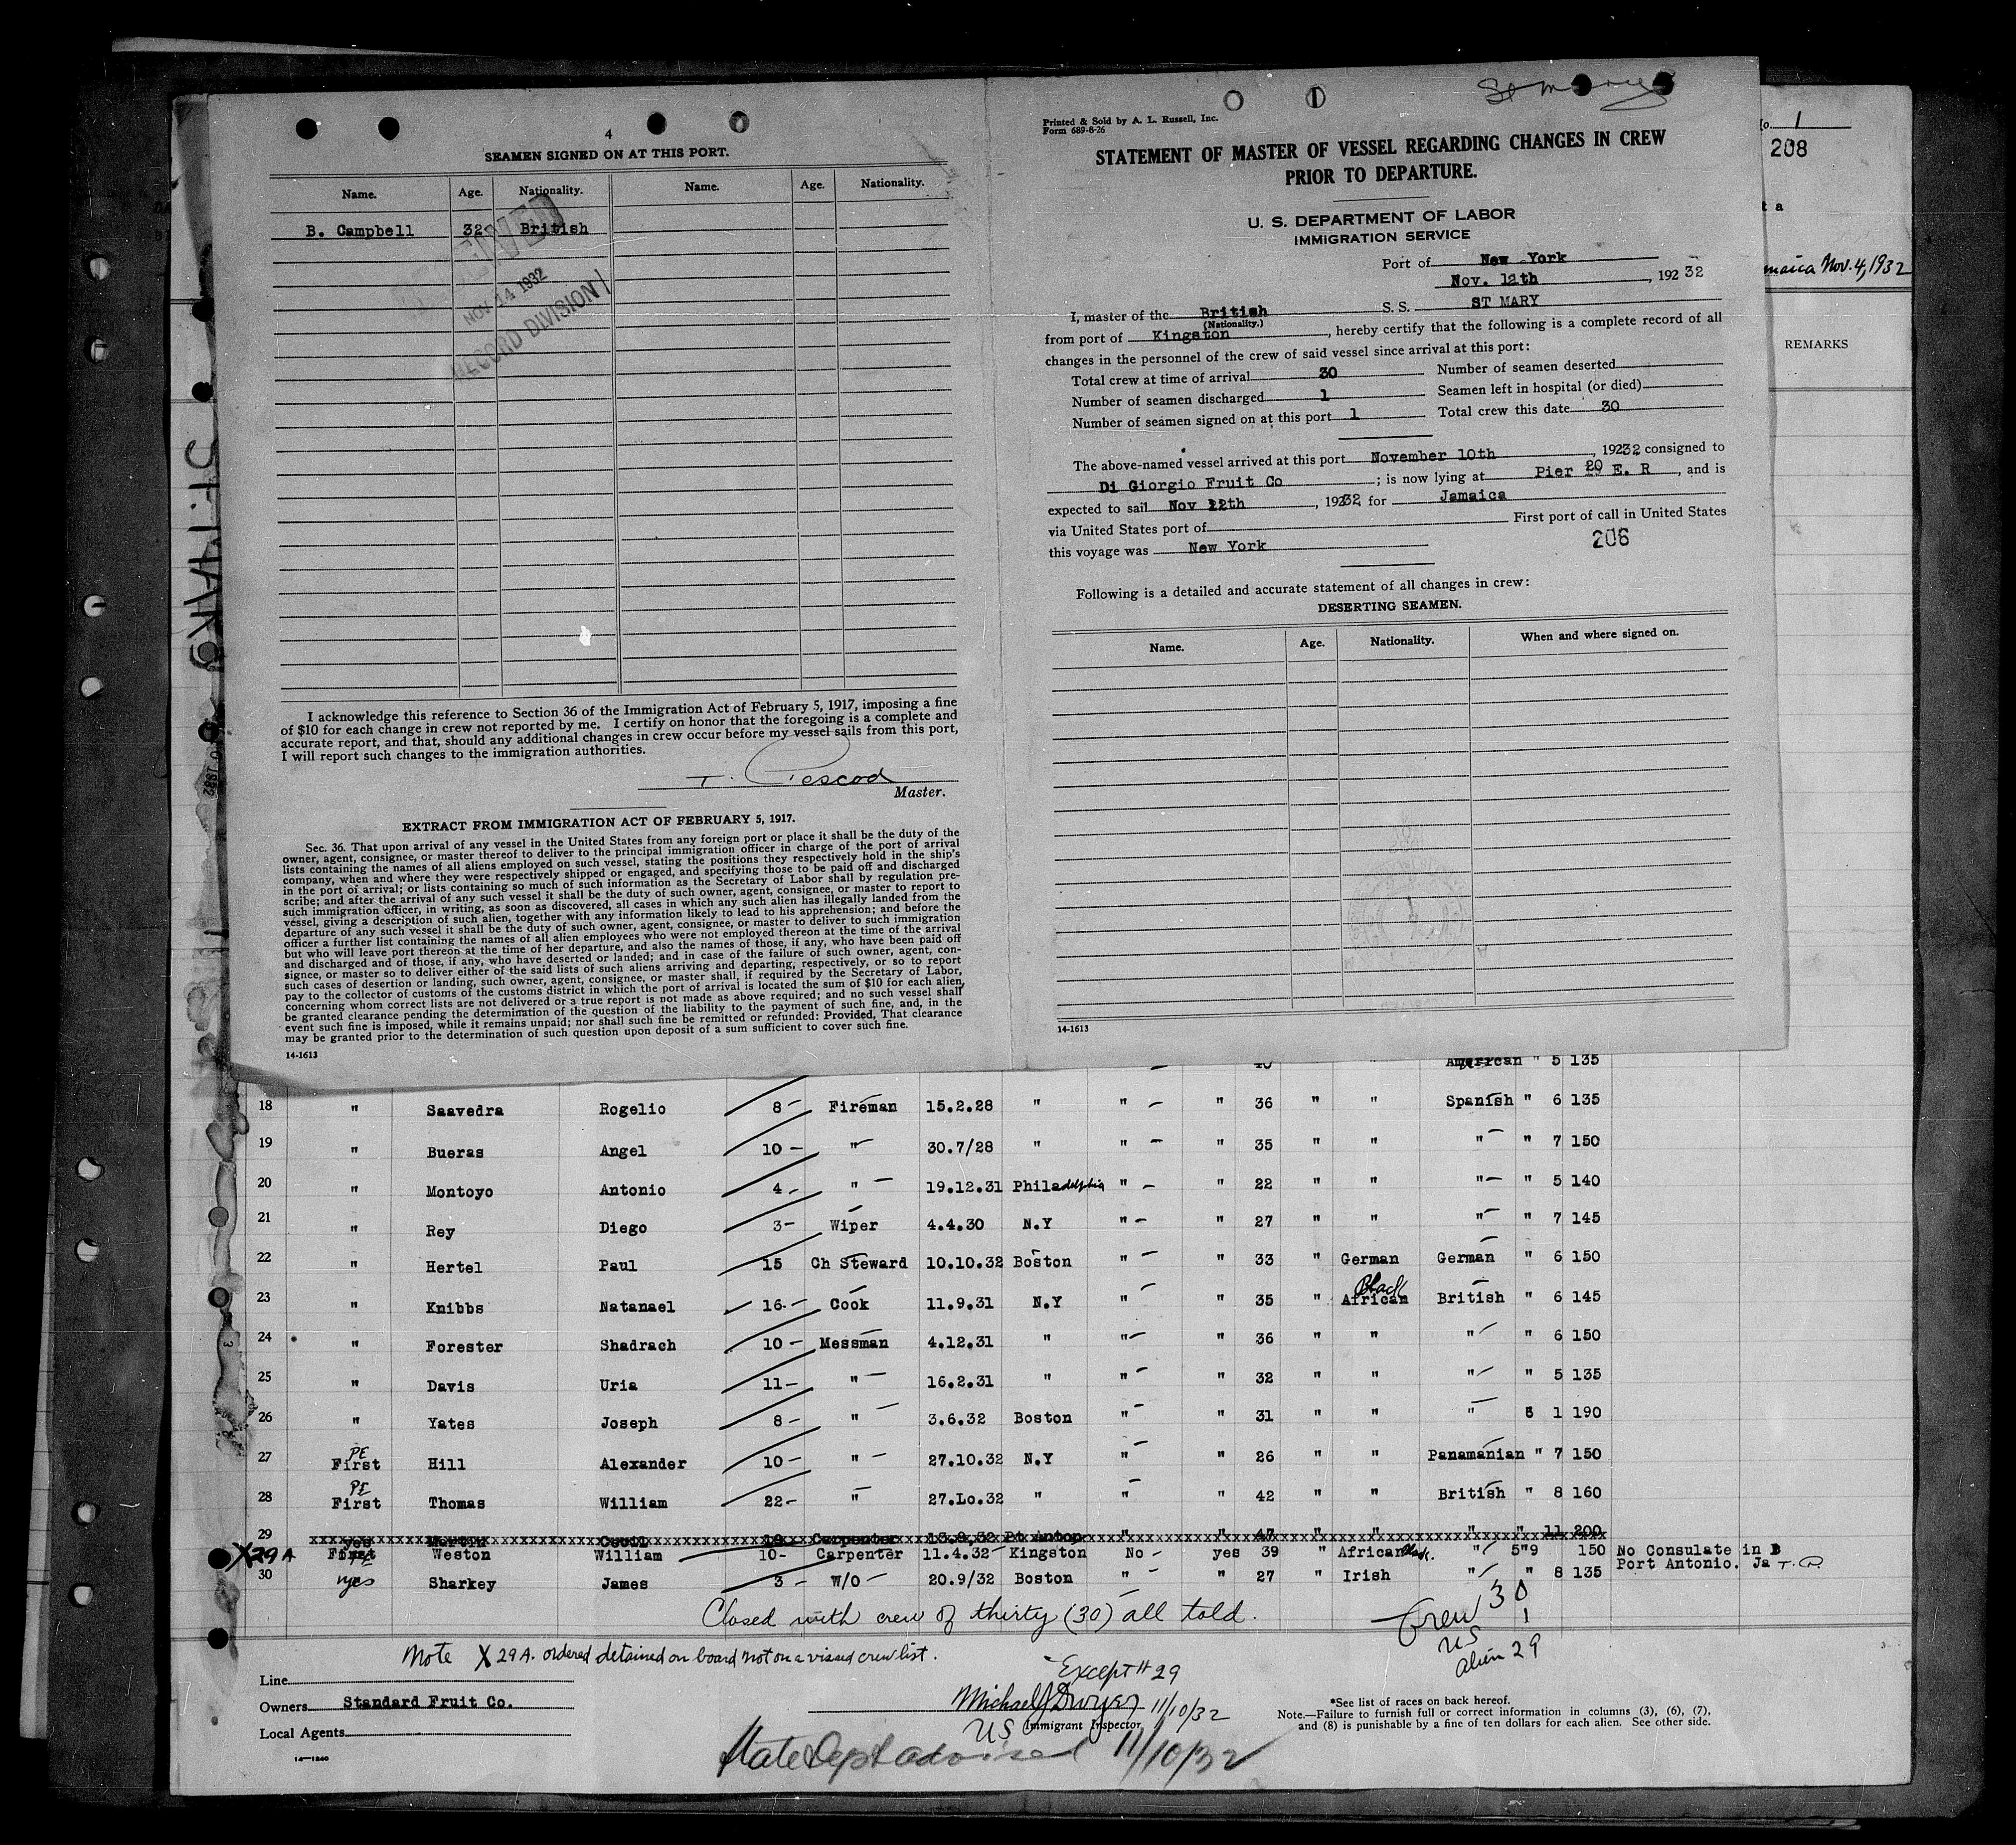 4
SEAMEN SIGNED ON AT THIS PORT.
Name. Age. Nationality. Name. Age. Nationality.
B. Campbell 32 British
NOV 14 1932
RECORD DIVISION
I acknowledge this reference to Section 36 of the Immigration Act of February 5, 1917, imposing a fine
of $10 for each change in crew not reported by me. I certify on honor that the foregoing is a complete and
accurate report, and that, should any additional changes in crew occur before my vessel sails from this port,
I will report such changes to the immigration authorities.
T. Pescod
Master.
EXTRACT FROM IMMIGRATION ACT OF FEBRUARY 5, 1917.
Sec. 36. That upon arrival of any vessel in the United States from any foreign port or place it shall be the duty of the
owner, agent, consignee, or master thereof to deliver to the principal immigration officer in charge of the port of arrival
lists containing the names of all aliens employed on such vessel, stating the positions they respectively hold in the ship's
company, when and where they were respectively shipped or engaged, and specifying those to be paid off and discharged
in the port of arrival; or lists containing so much of such information as the Secretary of Labor shall by regulation pre-
scribe; and after the arrival of any such vessel it shall be the duty of such owner, agent, consignee, or master to report to
such immigration officer, in writing, as soon as discovered, all cases in which any such alien has illegally landed from the
vessel, giving a description of such alien, together with any information likely to lead to his apprehension; and before the
departure of any such vessel it shall be the duty of such owner, agent, consignee, or master to deliver to such immigration
officer a further list containing the names of all alien employees who were not employed thereon at the time of the arrival
but who will leave port thereon at the time of her departure, and also the names of those, if any, who have been paid off
and discharged and of those, if any, who have deserted or landed; and in case of the failure of such owner, agent, con-
signee, or master so to deliver either of the said lists of such aliens arriving and departing, respectively, or so to report
such cases of desertion or landing, such owner, agent, consignee, or master shall, if required by the Secretary of Labor,
pay to the collector of customs of the customs district in which the port of arrival is located the sum of $10 for each alien,
concerning whom correct lists are not delivered or a true report is not made as above required; and no such vessel shall
be granted clearance pending the determination of the question of the liability to the payment of such fine, and, in the
event such fine is imposed, while it remains unpaid; nor shall such fine be remitted or refunded: Provided, That clearance
may be granted prior to the determination of such question upon deposit of a sum sufficient to cover such fine.
14-1613
St Mary
Printed & Sold by A. L. Russell, Inc.
Form 689-8-26
STATEMENT OF MASTER OF VESSEL REGARDING CHANGES IN CREW
PRIOR TO DEPARTURE.
U. S. DEPARTMENT OF LABOR
IMMIGRATION SERVICE
Port of New York
Nov. 12th, 192 32
I, master of the British S. S. ST MARY
(Nationality.)
from port of Kingston, hereby certify that the following is a complete record of all
changes in the personnel of the crew of said vessel since arrival at this port:
Total crew at time of arrival 30 Number of seamen deserted
Number of seamen discharged 1 Seamen left in hospital (or died)
Number of seamen signed on at this port 1 Total crew this date 30
The above-named vessel arrived at this port November 10th, 19232 consigned to
Di Giorgio Fruit Co; is now lying at Pier 20 E. R, and is
expected to sail Nov 12th, 19232, for Jamaica
via United States port of First port of call in United States
this voyage was New York
206
Following is a detailed and accurate statement of all changes in crew:
DESERTING SEAMEN.
Name. Age. Nationality. When and where signed on.
14-1613
1
208
t a
maica Nov. 4, 1932
REMARKS
ST. MARY
40 " American " 5 135
18 " Saavedra Rogelio 8 Fireman 15.2.28 " " " 36 " " Spanish " 6 135
19 " Bueras Angel 10 " 30.7/28 " " " 35 " " " " 7 150
20 " Montoyo Antonio 4 " 19.12.31 Philadelphia " " 22 " " " " 5 140
21 " Rey Diego 3 Wiper 4.4.30 N.Y " " 27 " " " " 7 145
22 " Hertel Paul 15 Ch Steward 10.10.32 Boston " " 33 " German German " 6 150
23 " Knibbs Natanael 16 Cook 11.9.31 N.Y " " 35 " African Black British " 6 145
24 " Forester Shadrach 10 Messman 4.12.31 " " " 36 " " " " 6 150
25 " Davis Uria 11 " 16.2.31 " " " 32 " " " " 5 135
26 " Yates Joseph 8 " 3.6.32 Boston " " 31 " " " 5 1 190
27 PE First Hill Alexander 10 " 27.10.32 N.Y " " 26 " " Panamanian " 7 150
28 PE First Thomas William 22 " 27.Lo.32 " " " 42 " " British " 8 160
29 yes Martin Cecil 10 Carpenter 13.9.32 Pt Anton " " 47 " " " " 11 200
X29A First Weston William 10 Carpenter 11.4.32 Kingston No yes 39 " African Black. " 5"9 150 No Consulate in B
Port Antonio. Ja T. P
30 yes Sharkey James 3 W/O 20.9/32 Boston " " 27 " Irish " " 8 135
Closed with crew of thirty (30) all told.
Crew 30
US 1
Alien 29
Note X 29 A. ordered detained on board not on a visaed crew list.
Line
Owners Standard Fruit Co.
Local Agents
14-1240
Except # 29
Michael J Dwyer 11/10/32
US Immigrant Inspector
State Dept advised 11/10/32
*See list of races on back hereof.
Note.—Failure to furnish full or correct information in columns (3), (6), (7),
and (8) is punishable by a fine of ten dollars for each alien. See other side.